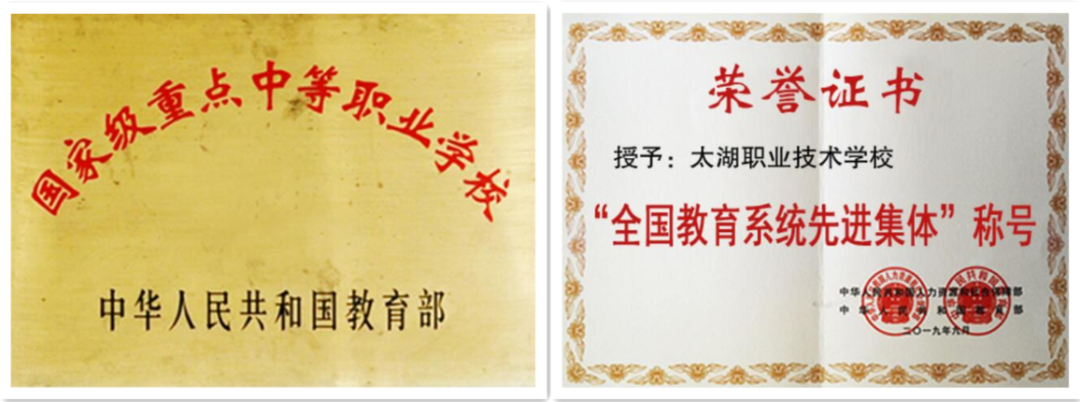 国家级重点中等职业学校
中华人民共和国教育部
荣誉证书
授予：太湖职业技术学校
“全国教育系统先进集体”称号
中华人民共和国人力资源和社会保障部
中华人民共和国教育部
二〇一九年九月